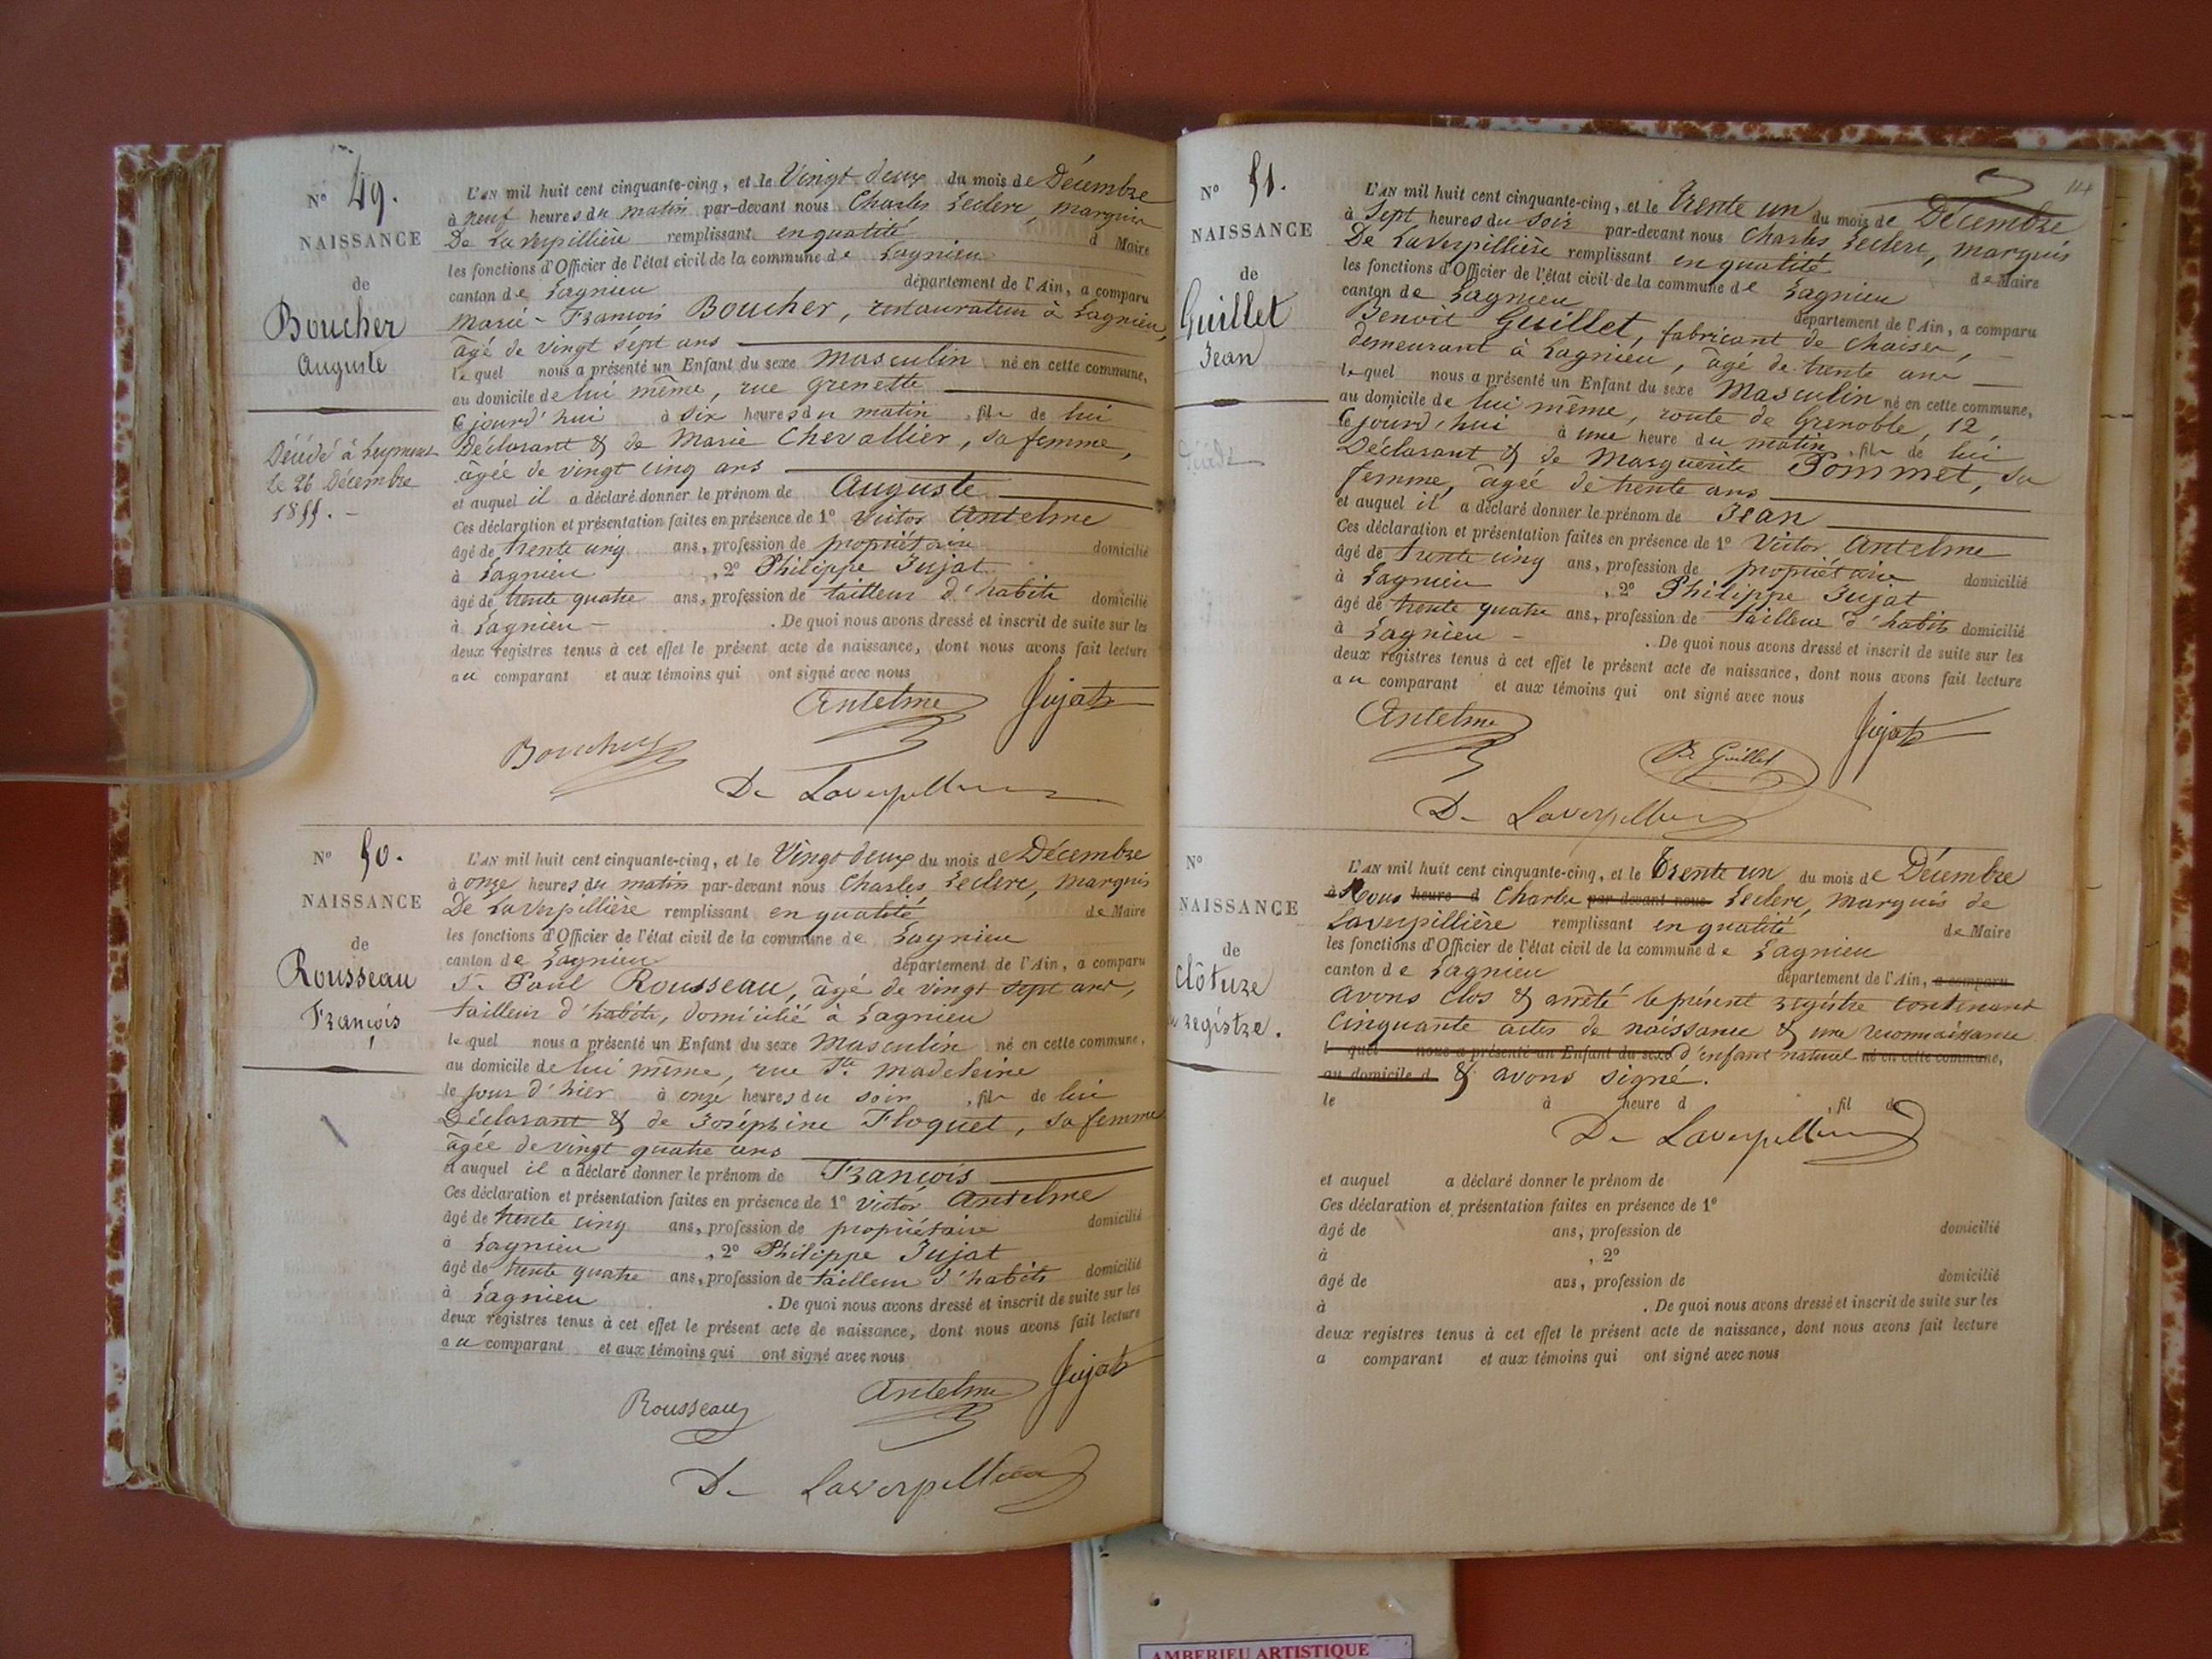 N° 49.
NAISSANCE
de
Boucher
Auguste
Décédé à Leyment
le 26 Décembre
1855. -
L'AN mil huit cent cinquante-cinq, et le Vingt deux du mois de Décembre
à neuf heures du matin par-devant nous Charles Leclerc, Marquis
De Laverpillière remplissant en qualité d Maire
les fonctions d'Officier de l'état civil de la commune de Lagnieu
canton de Lagnieu département de l'Ain, a comparu
Marie-François Boucher, restaurateur à Lagnieu,
âgé de vingt sept ans
lequel nous a présenté un Enfant du sexe Masculin né en cette commune,
au domicile de lui même, rue Grenette
Cejourd'hui à six heures du matin, fils de lui
Déclarant & de Marie Chevallier, sa femme,
âgée de vingt cinq ans
et auquel il a déclaré donner le prénom de Auguste
Ces déclaration et présentation faites en présence de 1° Victor Antelme
âgé de trente cinq ans, profession de propriétaire domicilié
à Lagnieu, 2° Philippe Jujat
âgé de trente quatre ans, profession de tailleur d'habits domicilié
à Lagnieu - . De quoi nous avons dressé et inscrit de suite sur les
deux registres tenus à cet effet le présent acte de naissance, dont nous avons fait lecture
au comparant et aux témoins qui ont signé avec nous
Antelme Jujat
Boucher
De Laverpillière
N° 50.
NAISSANCE
de
Rousseau
François
L'AN mil huit cent cinquante-cinq, et le Vingt deux du mois de Décembre
à onze heures du matin par-devant nous Charles Leclerc, Marquis
De Laverpillière remplissant en qualité de Maire
les fonctions d'Officier de l'état civil de la commune de Lagnieu
canton de Lagnieu département de l'Ain, a comparu
Paul Rousseau, âgé de vingt sept ans,
tailleur d'habits, domicilié à Lagnieu
lequel nous a présenté un Enfant du sexe Masculin né en cette commune,
au domicile de lui même, rue Ste Madeleine
le jour d'hier à onze heures du soir, fils de lui
Déclarant & de Joséphine Floquet, sa femme
âgée de vingt quatre ans
et auquel il a déclaré donner le prénom de François
Ces déclaration et présentation faites en présence de 1° Victor Antelme
âgé de trente cinq ans, profession de propriétaire domicilié
à Lagnieu, 2° Philippe Jujat
âgé de trente quatre ans, profession de tailleur d'habits domicilié
à Lagnieu . De quoi nous avons dressé et inscrit de suite sur les
deux registres tenus à cet effet le présent acte de naissance, dont nous avons fait lecture
au comparant et aux témoins qui ont signé avec nous
Rousseau Antelme Jujat
De Laverpillière
114
N° 51.
NAISSANCE
de
Guillet
Jean
Décédé
L'AN mil huit cent cinquante-cinq, et le Trente un du mois de Décembre
à Sept heures du soir par-devant nous Charles Leclerc, Marquis
De Laverpillière remplissant en qualité de Maire
les fonctions d'Officier de l'état civil de la commune de Lagnieu
canton de Lagnieu département de l'Ain, a comparu
Benoit Guillet, fabricant de chaises,
demeurant à Lagnieu, âgé de trente ans
lequel nous a présenté un Enfant du sexe Masculin né en cette commune,
au domicile de lui même, route de Grenoble, 12,
Cejourd'hui à une heure du matin, fils de lui
Déclarant & de Marguerite Pommet, sa
femme, âgée de trente ans
et auquel il a déclaré donner le prénom de Jean
Ces déclaration et présentation faites en présence de 1° Victor Antelme
âgé de trente cinq ans, profession de propriétaire domicilié
à Lagnieu, 2° Philippe Jujat
âgé de trente quatre ans, profession de tailleur d'habits domicilié
à Lagnieu - . De quoi nous avons dressé et inscrit de suite sur les
deux registres tenus à cet effet le présent acte de naissance, dont nous avons fait lecture
au comparant et aux témoins qui ont signé avec nous
Antelme Be Guillet Jujat
De Laverpillière
N°
NAISSANCE
de
Clôture
registre.
L'AN mil huit cent cinquante-cinq, et le Trente un du mois de Décembre
à Nous heure d Charles par-devant nous Leclerc, Marquis de
Laverpillière remplissant en qualité de Maire
les fonctions d'Officier de l'état civil de la commune de Lagnieu
canton de Lagnieu département de l'Ain, a comparu
avons clos & arrêté le présent registre contenant
Cinquante actes de naissance & une reconnaissance
l quel nous a présenté un Enfant du sexe d'enfant naturel né en cette commune,
au domicile d & avons signé.
le à heure d , fil de
De Laverpillière
et auquel a déclaré donner le prénom de
Ces déclaration et présentation faites en présence de 1°
âgé de ans, profession de domicilié
à , 2°
âgé de ans, profession de domicilié
à . De quoi nous avons dressé et inscrit de suite sur les
deux registres tenus à cet effet le présent acte de naissance, dont nous avons fait lecture
a comparant et aux témoins qui ont signé avec nous
AMBERIEU ARTISTIQUE